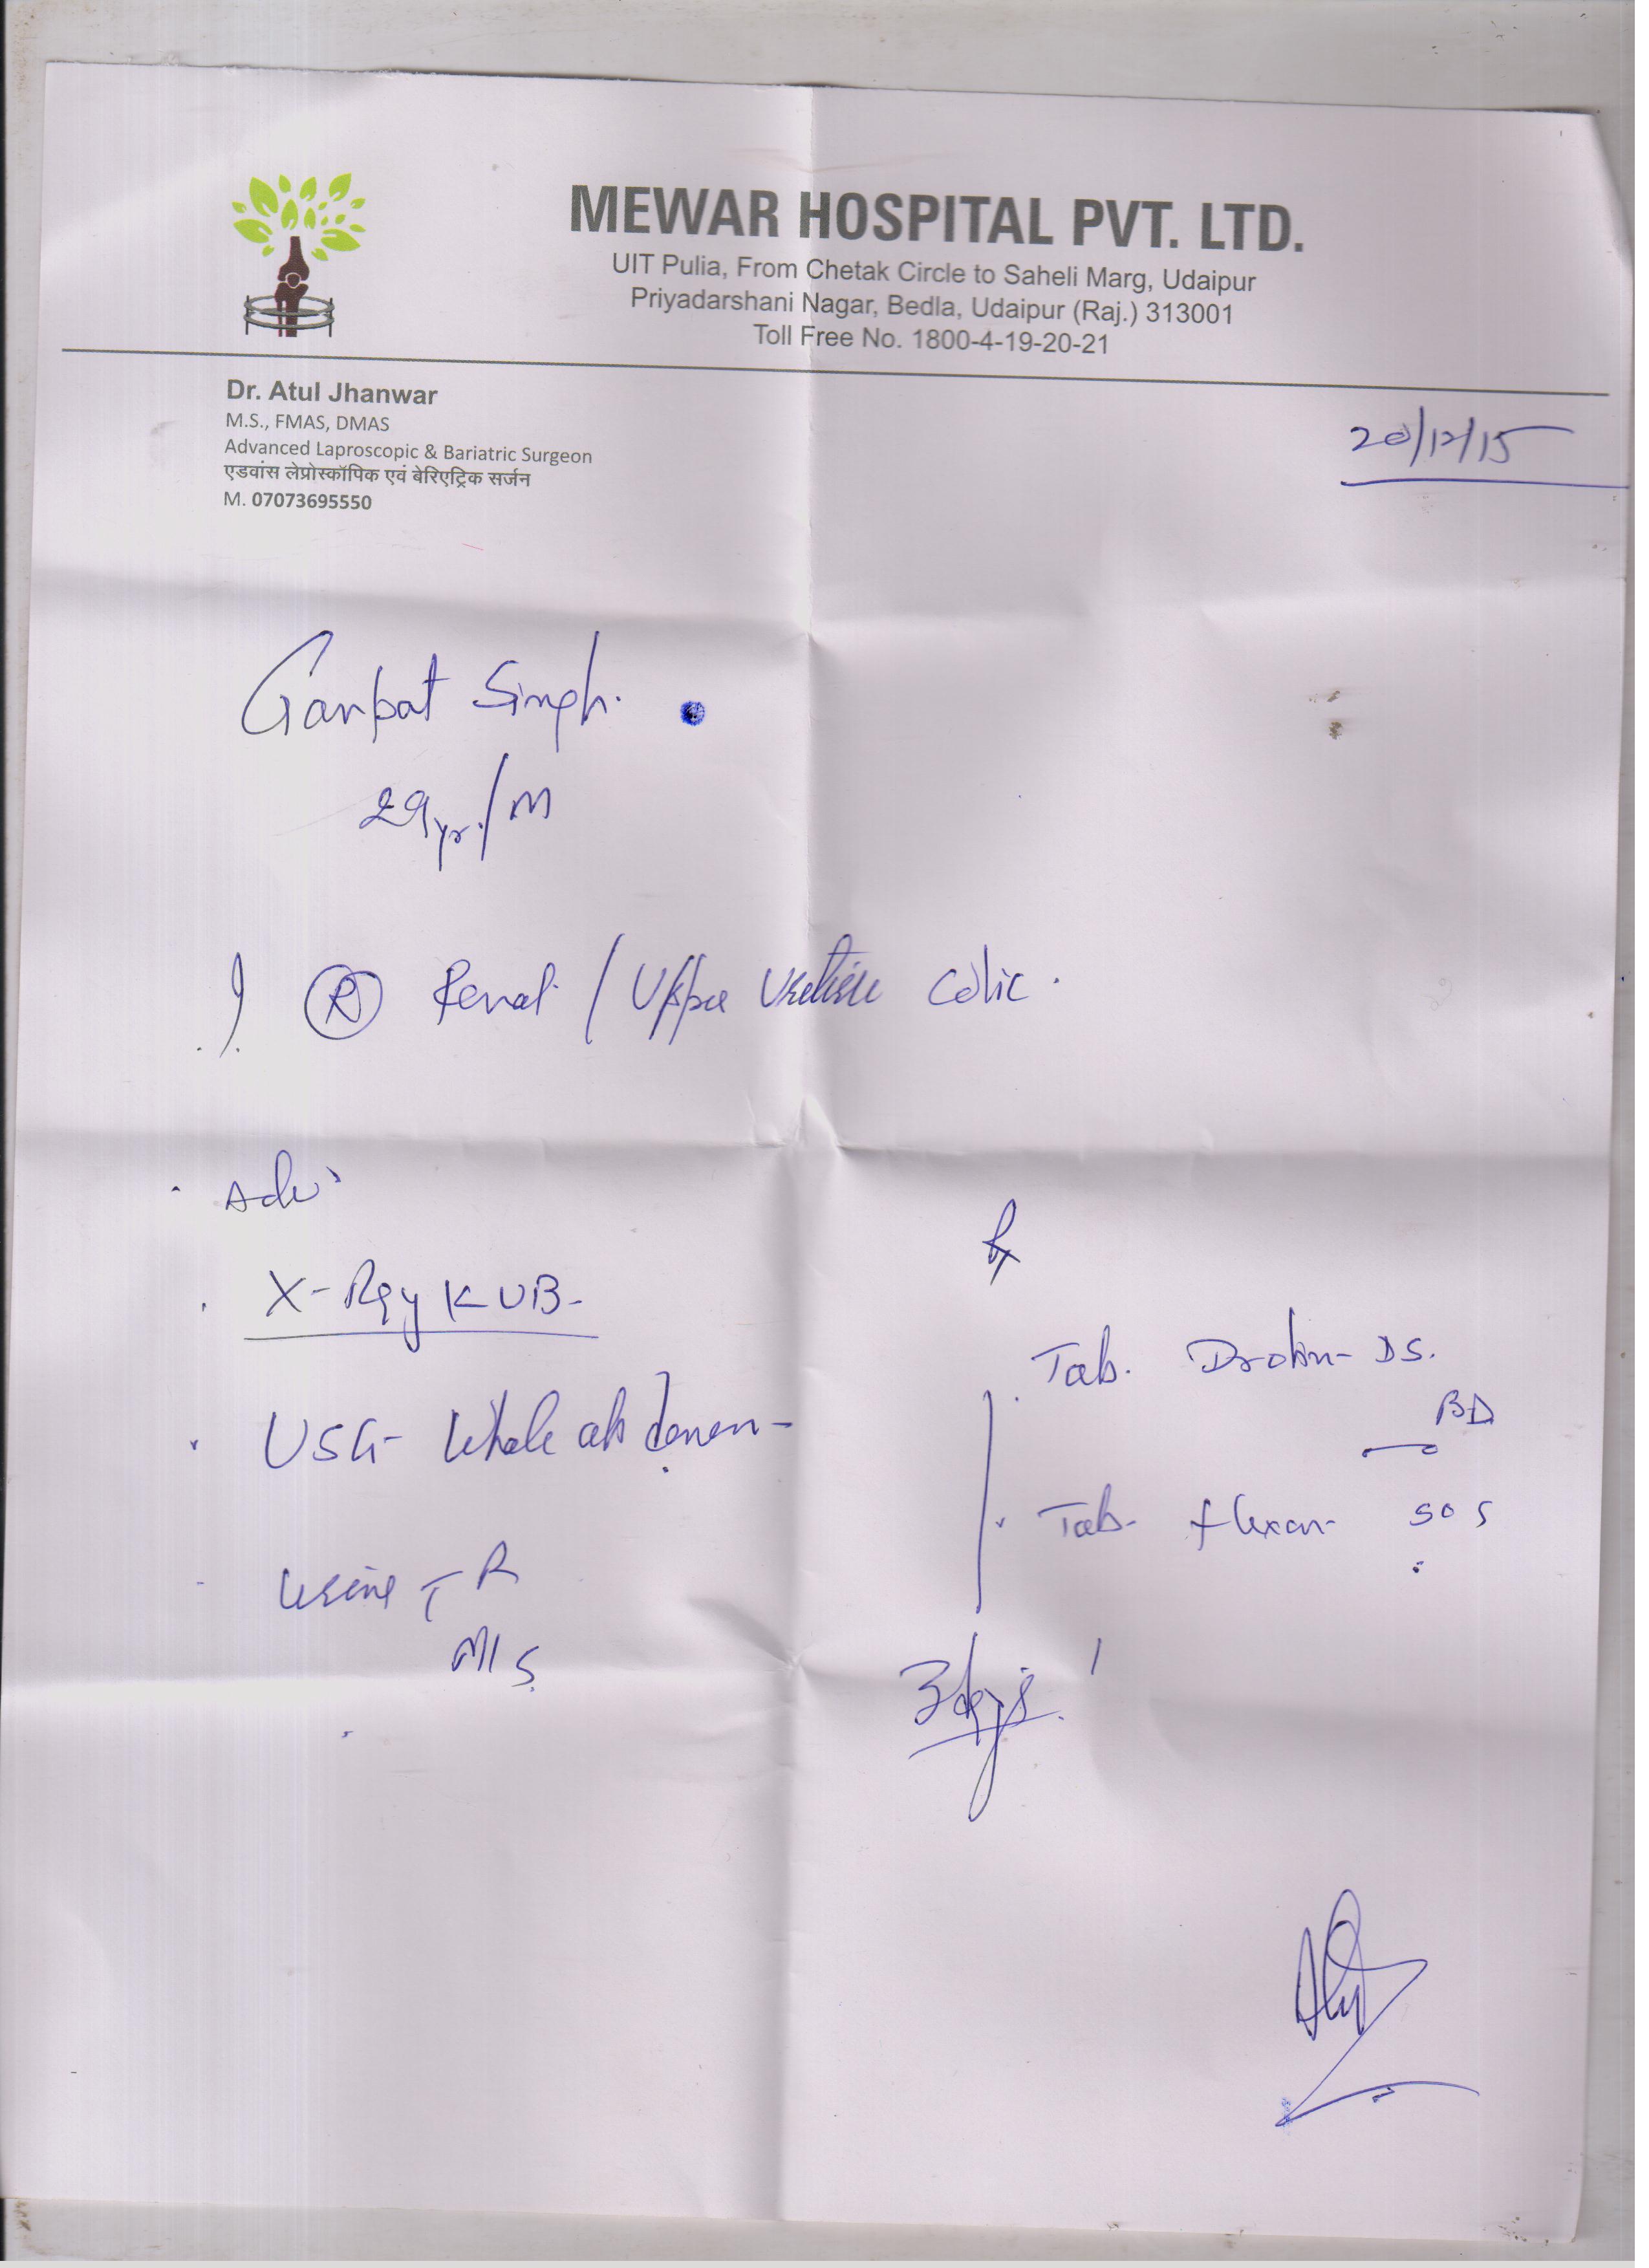 MEWAR HOSPITAL PVT. LTD.
UIT Pulia, From Chetak Circle to Saheli Marg, Udaipur
Priyadarshani Nagar, Bedla, Udaipur (Raj.) 313001
Toll Free No. 1800-4-19-20-21
Dr. Atul Jhanwar
M.S., FMAS, DMAS
Advanced Laproscopic & Bariatric Surgeon
एडवांस लेप्रोस्कॉपिक एवं बेरिएट्रिक सर्जन
M. 07073695550
20/12/15
Ganpat Singh.
29yr./M
R Renal / Upper Ureteric Colic.
Adv
X-Ray KUB-
USG- Whole abdomen-
Urine R
M/S
Rx
Tab. Drotin-DS.
BD
Tab- flexon- SOS
3days